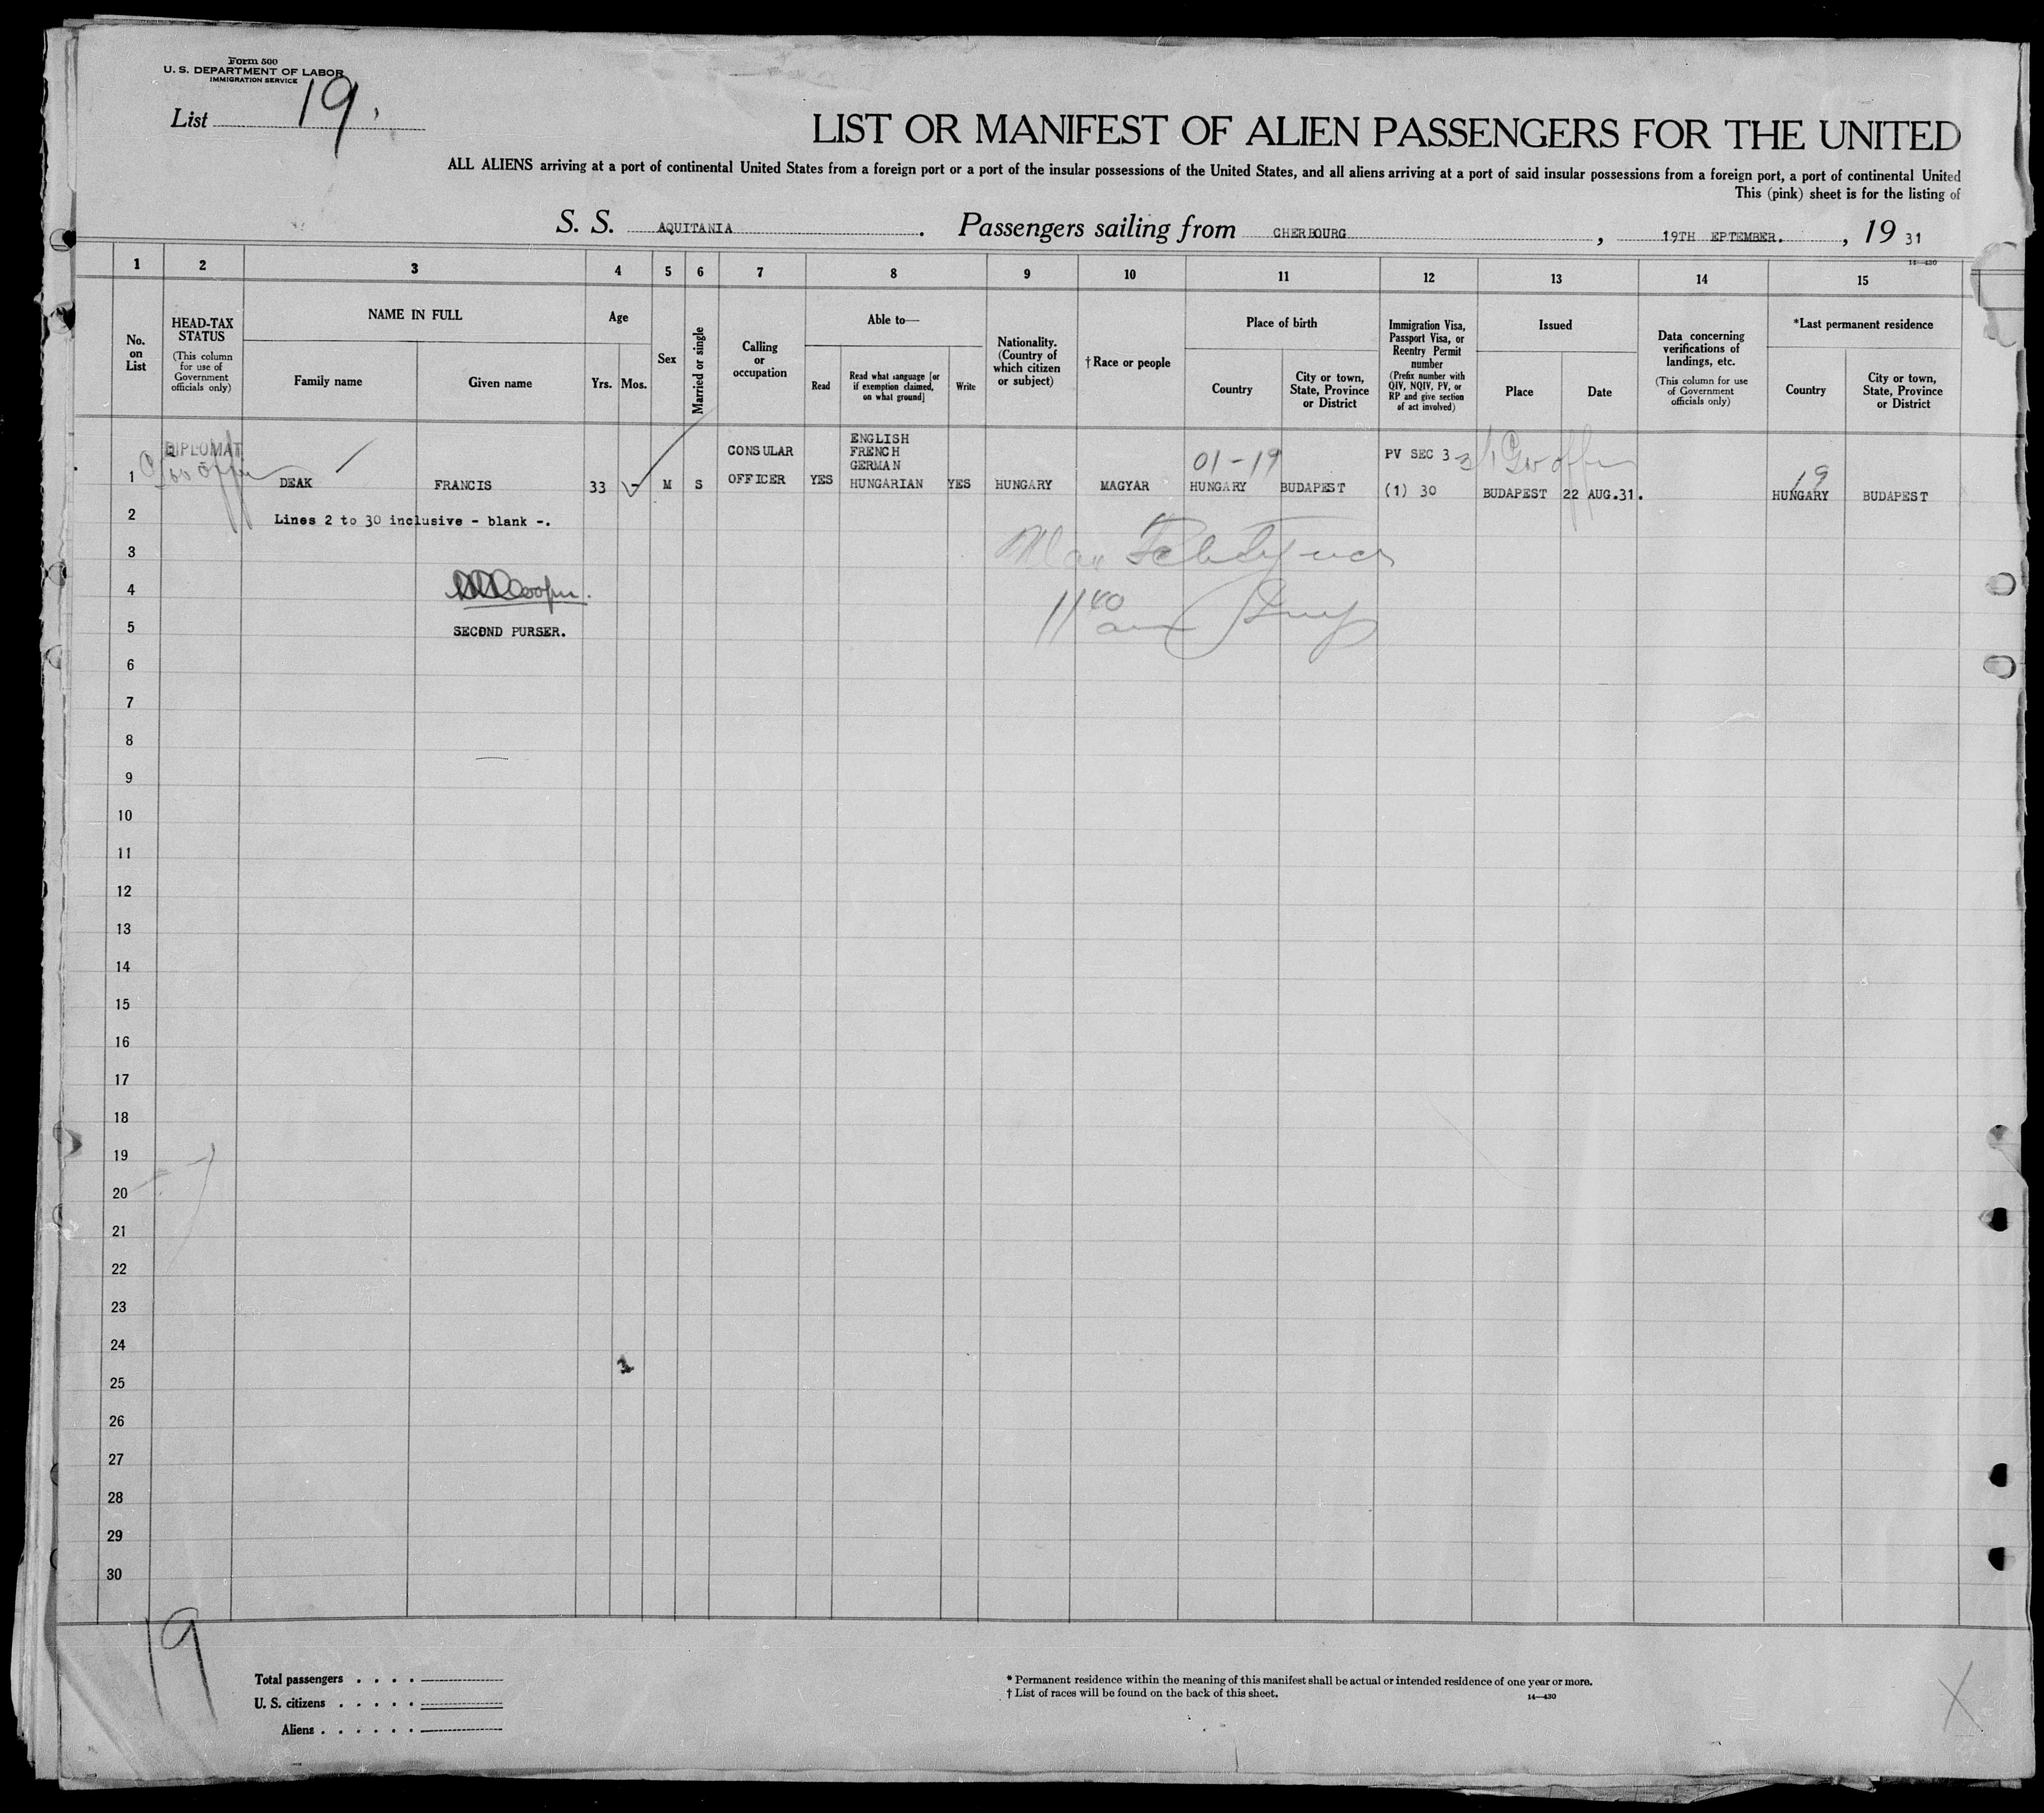 Form 500
U. S. DEPARTMENT OF LABOR
IMMIGRATION SERVICE
List 19.
LIST OR MANIFEST OF ALIEN PASSENGERS FOR THE UNITED
ALL ALIENS arriving at a port of continental United States from a foreign port or a port of the insular possessions of the United States, and all aliens arriving at a port of said insular possessions from a foreign port, a port of continental United
This (pink) sheet is for the listing of
S. S. AQUITANIA. Passengers sailing from CHERBOURG, 19TH EPTEMBER., 19 31
14—430
1 2 3 4 5 6 7 8 9 10 11 12 13 14 15
No. on List
HEAD-TAX STATUS
(This column for use of Government officials only)
NAME IN FULL
Family name
Given name
Age
Yrs. Mos.
Sex
Married or single
Calling or occupation
Able to—
Read
Read what language [or if exemption claimed, on what ground]
Write
Nationality. (Country of which citizen or subject)
† Race or people
Place of birth
Country
City or town, State, Province or District
Immigration Visa, Passport Visa, or Reentry Permit number
(Prefix number with QIV, NQIV, PV, or RP and give section of act involved)
Issued
Place
Date
Data concerning verifications of landings, etc.
(This column for use of Government officials only)
*Last permanent residence
Country
City or town, State, Province or District
DIPLOMAT
1 DEAK FRANCIS 33 - M S CONSULAR OFFICER YES ENGLISH FRENCH GERMAN HUNGARIAN YES HUNGARY MAGYAR 01-19 HUNGARY BUDAPEST PV SEC 3 (1) 30 BUDAPEST 22 AUG.31. 19 HUNGARY BUDAPEST
2 Lines 2 to 30 inclusive - blank -.
3
4 Cooper.
5 SECOND PURSER.
11 40
6
7
8
9
10
11
12
13
14
15
16
17
18
19
20
21
22
23
24
25
26
27
28
29
30
19
Total passengers . . . .
U. S. citizens . . . . .
Aliens . . . . . .
* Permanent residence within the meaning of this manifest shall be actual or intended residence of one year or more.
† List of races will be found on the back of this sheet.
14—430
X